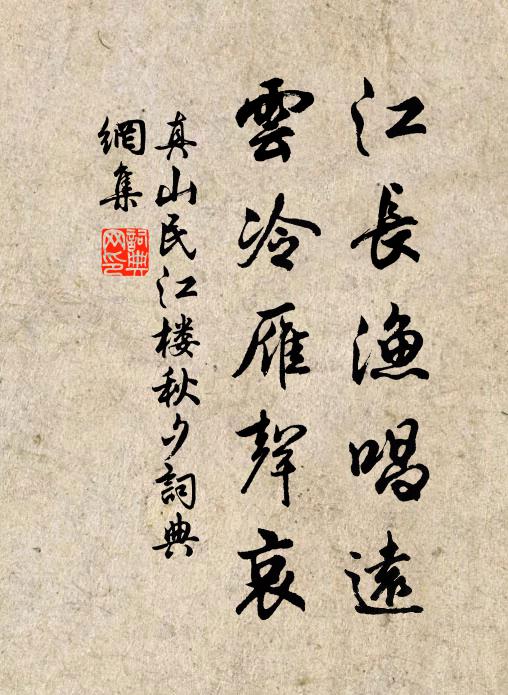 江長漁唱遠
雲冷雁聲哀
真山民江楼秋夕詞典
網集
詞典网印